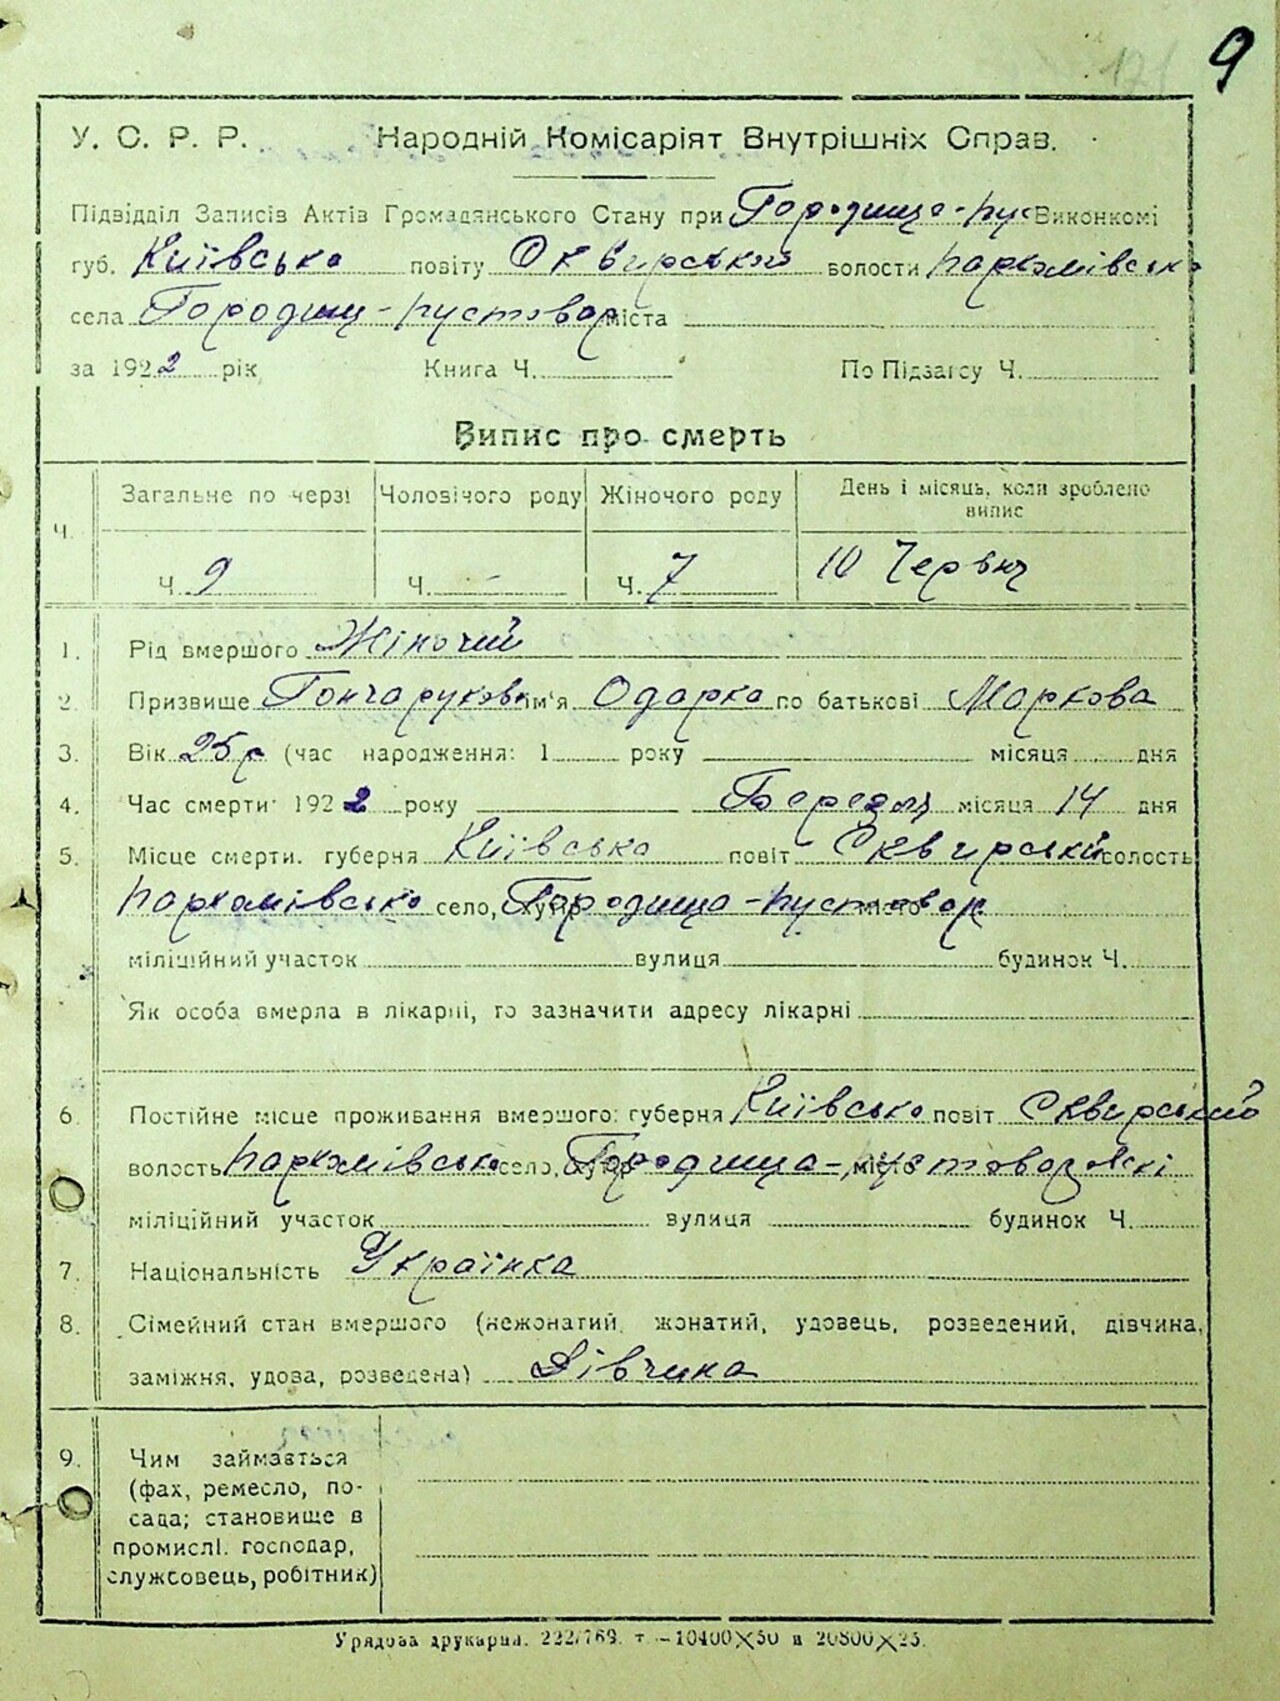 9
У. С. Р. Р. Народній Комісаріят Внутрішніх Справ.
Підвідділ Записів Актів Громадянського Стану при Городище-пус Виконкомі
губ. Київська повіту Сквирський волости пархомівська
села Городищ-пустовар міста
за 1922 рік Книга Ч. По Підзагсу Ч.
Випис про смерть
Ч. Загальне по черзі Чоловічого роду Жіночого роду День і місяць, коли зроблено
випис
Ч. 9 Ч. - Ч. 7 10 Червня
1. Рід вмершого Жіночий
2. Призвище Гончарукова ім'я Одарка по батькові Маркова
3. Вік 25 р (час народження: 1 року місяця дня
4. Час смерти 1922 року Березня місяця 14 дня
5. Місце смерти. губерня Київська повіт Сквирський волость
пархомівська село, хутір Городища-пустовар місто
міліційний участок вулиця будинок Ч.
Як особа вмерла в лікарні, то зазначити адресу лікарні
6. Постійне місце проживання вмершого: губерня Київська повіт Сквирський
волость пархомівська село, хутір Городища- місто
міліційний участок вулиця будинок Ч.
7. Національність Українка
8. Сімейний стан вмершого (нежонатий, жонатий, удовець, розведений, дівчина,
заміжня, удова, розведена) Дівчина
9. Чим займається
(фах, ремесло, по-
сада; становище в
промислі. господар,
службовець, робітник)
Урядова друкарня. 222/769. т. —10400×50 и 20800×25.